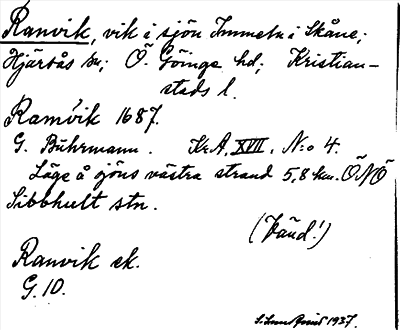 Ranvik, vik i sjön Immeln i Skåne;
Hjärsås sn; Ö. Göinge hd; Kristian-
stads l.
Ramsvik 1687.
G. Buhrmann. Kr.A. XVII. N:o 4.
Läge å sjöns västra strand 5,8 km. ÖNÖ
Sibbhult stn.
(Vänd!)
Ranvik ek.
G.10.
1937.